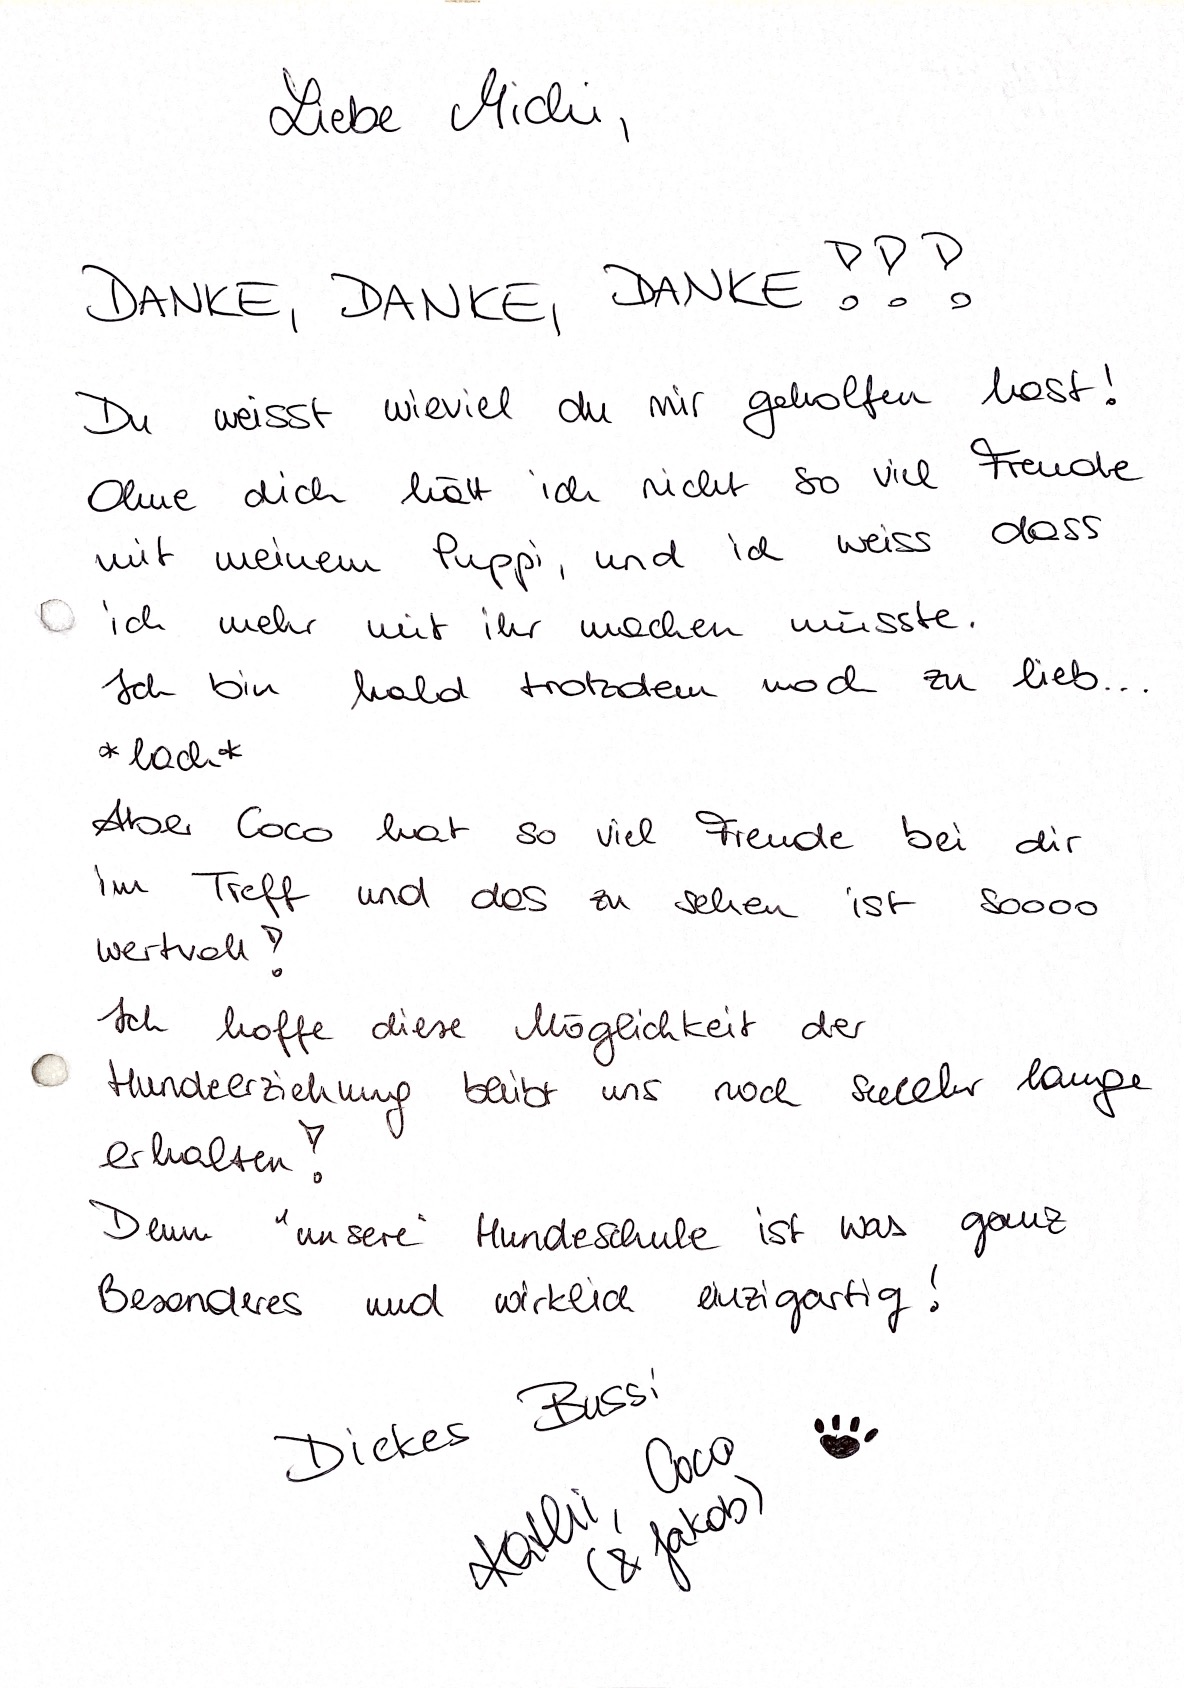 Liebe Michi,
DANKE, DANKE, DANKE!!!
Du weisst wieviel du mir geholfen hast!
Ohne dich hätt ich nicht so viel Freude
mit meinem Puppi, und ich weiss dass
ich mehr mit ihr machen müsste.
Ich bin hald trotzdem noch zu lieb...
*lach*
Aber Coco hat so viel Freude bei dir
im Treff und das zu sehen ist soooo
wertvoll!
Ich hoffe diese Möglichkeit der
Hundeerziehung bleibt uns noch seeehr lange
erhalten!
Denn "unsere" Hundeschule ist was ganz
Besonderes und wirklich einzigartig!
Dickes Bussi
Kathi, Coco
(& Jakob)